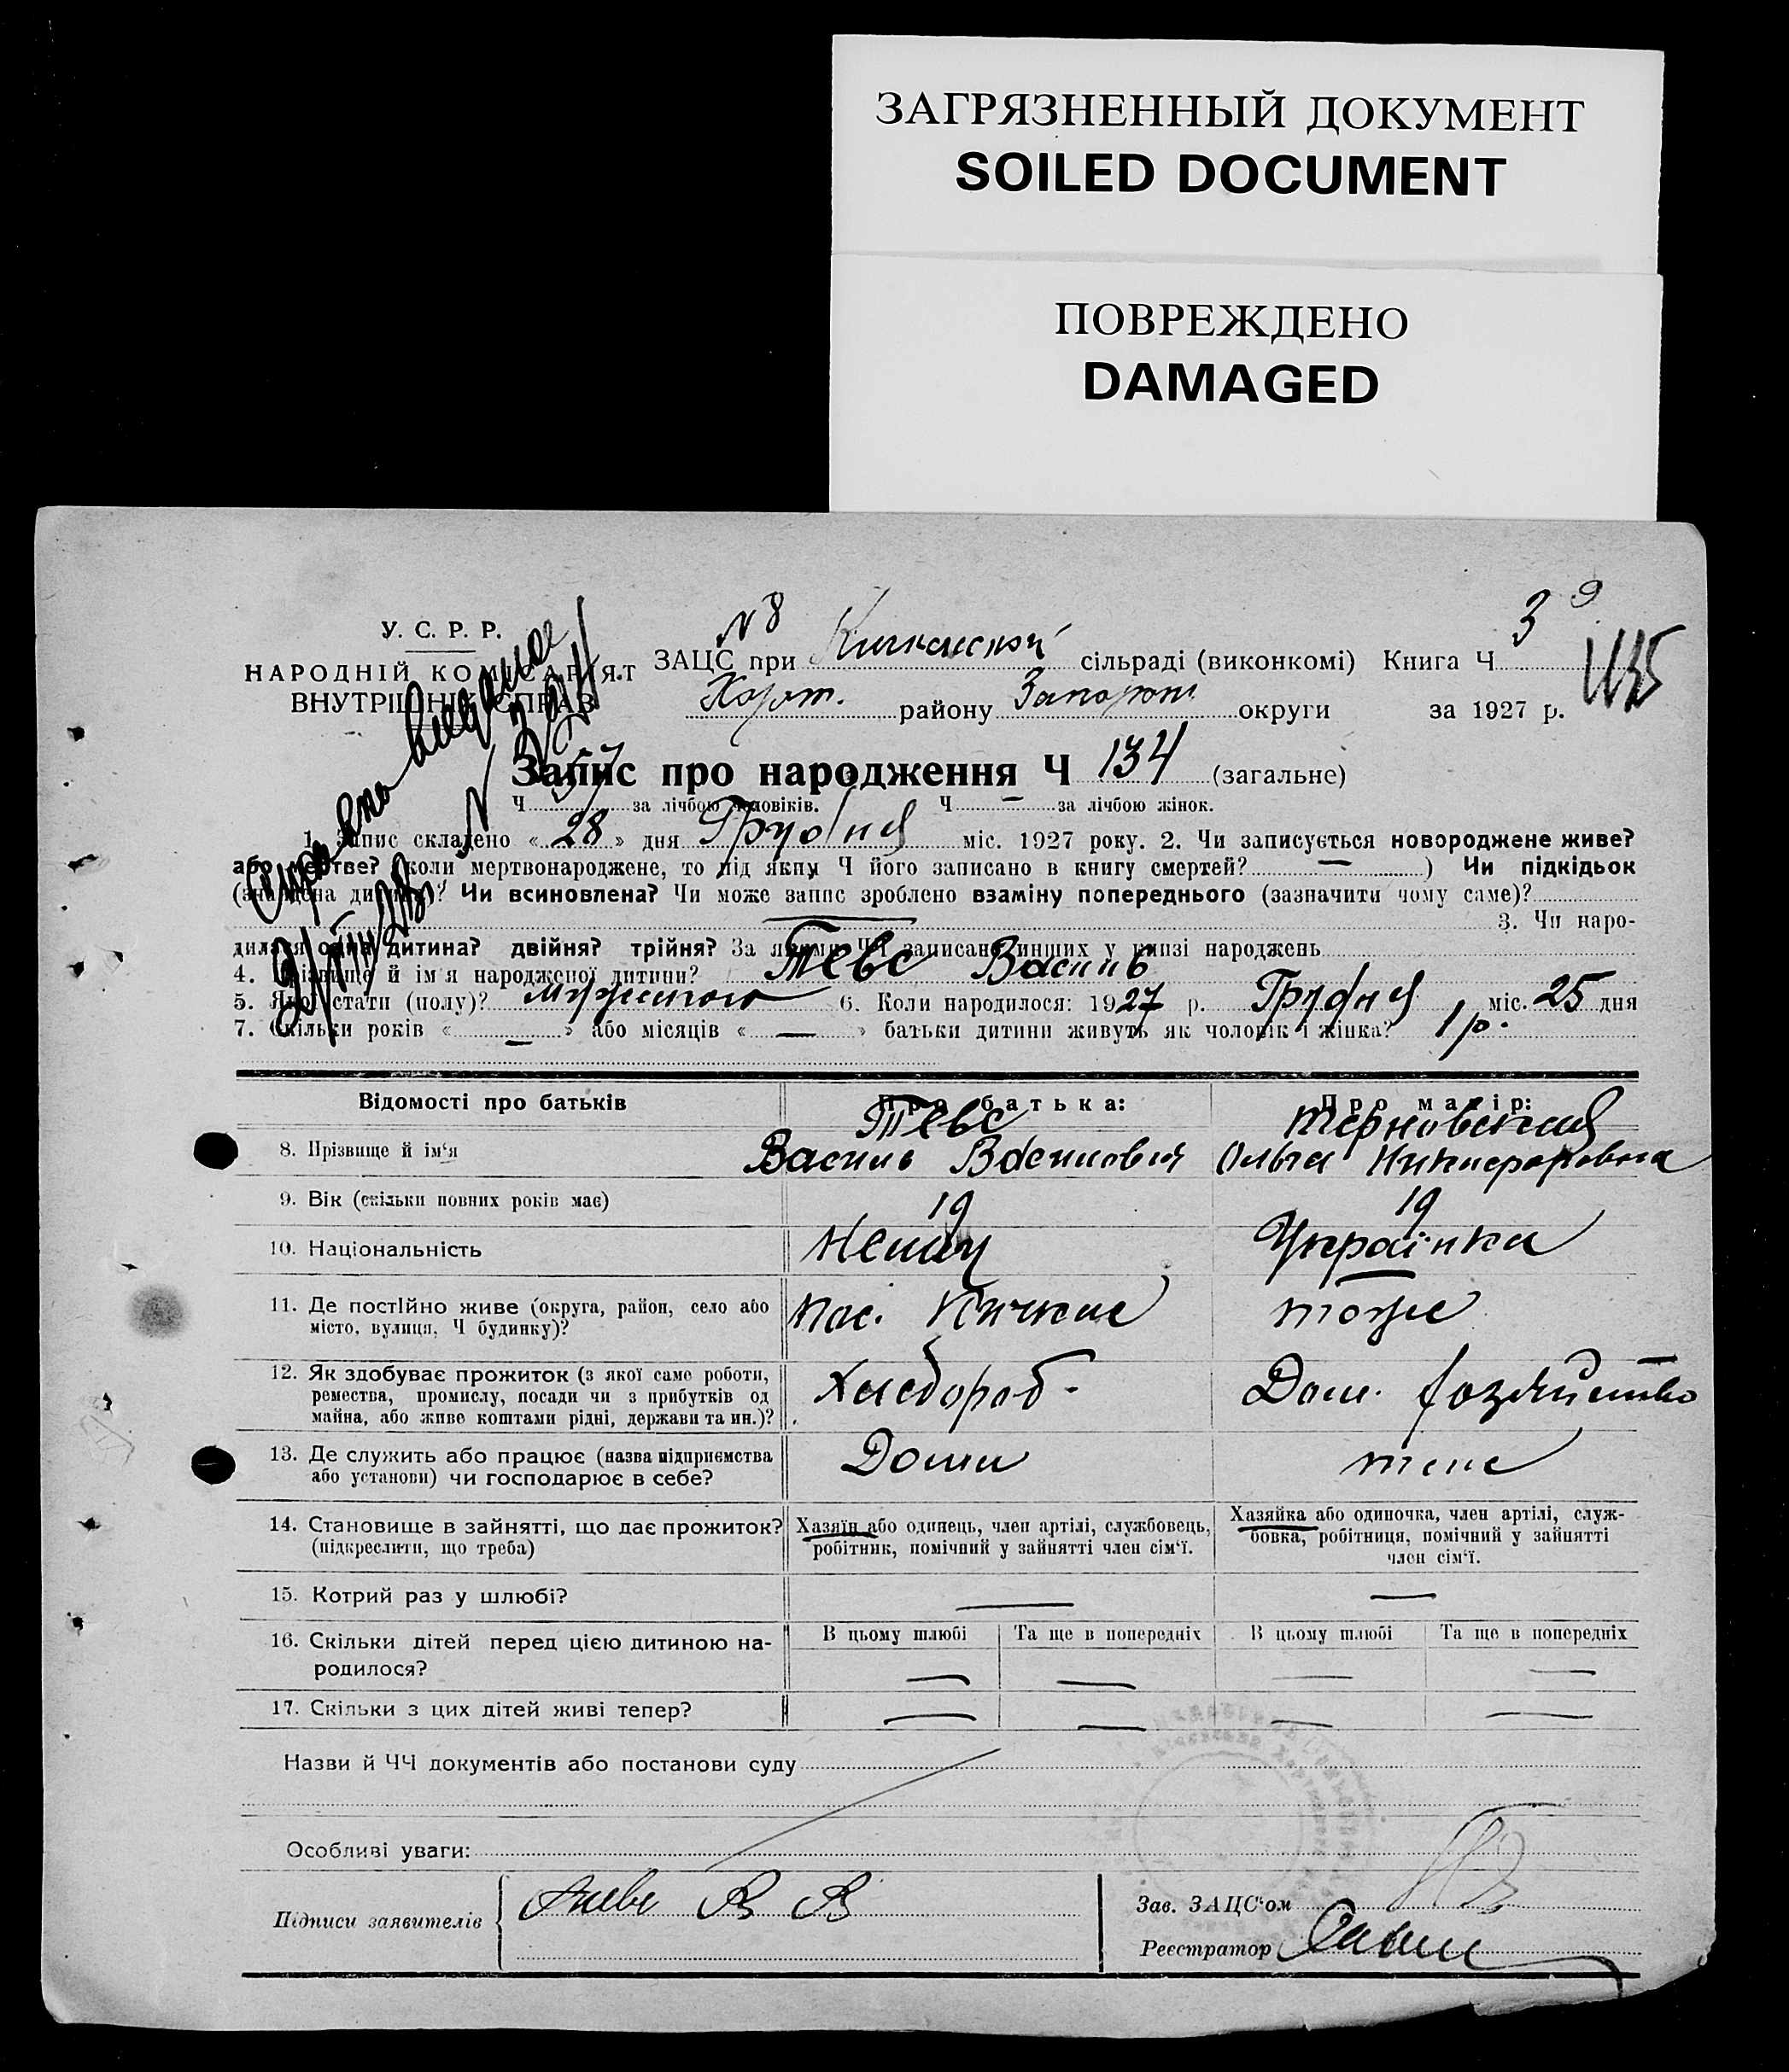 ЗАГРЯЗНЕННЫЙ ДОКУМЕНТ
SOILED DOCUMENT
ПОВРЕЖДЕНО
DAMAGED
У. С. Р. Р.
НАРОДНІЙ КОМІСАРІЯТ
ВНУТРІШНІХ СПРАВ
N 8
ЗАЦС при Кичкаской сільраді (виконкомі) Книга Ч 3 9
Хорт. району Запорож округи за 1927 р.
Справка выдана
Запис про народження Ч 134 (загальне)
Ч 57 за лічбою чоловіків. Ч — за лічбою жінок.
1. Запис складено « 28 » дня Грудня міс. 1927 року. 2. Чи записується новороджене живе?
або мертве? (коли мертвонароджене, то під яким Ч його записано в книгу смертей? — ) Чи підкідьок
(знайдена дитина)? Чи всиновлена? Чи може запис зроблено взаміну попереднього (зазначити чому саме)?
3. Чи наро-
дилася одна дитина? двійня? трійня? За якими ЧЧ записано инших у книзі народжень
4. Прізвище й ім'я народженої дитини? Тевс Василь
5. Якої стати (полу)? мужеського 6. Коли народилося: 1927 р. Грудня міс. 25 дня
7. Скільки років « — » або місяців « — » батьки дитини живуть як чоловік і жінка? 1 р.
Відомості про батьків Про батька: Про матір:
8. Прізвище й ім'я Тевс Василь Васильович Терновская Ольга Никифоровна
9. Вік (скільки повних років має) 19 19
10. Національність Немец Українка
11. Де постійно живе (округа, район, село або
місто, вулиця, Ч будинку)? пос. Кичкас тоже
12. Як здобуває прожиток (з якої саме роботи,
ремества, промислу, посади чи з прибутків од
майна, або живе коштами рідні, держави та ин.)? Хлебороб. Дом. хозяйство
13. Де служить або працює (назва підприємства
або установи) чи господарює в себе? Дома тоже
14. Становище в зайнятті, що дає прожиток?
(підкреслити, що треба)
Хазяїн або одинець, член артілі, службовець,
робітник, помічний у зайнятті член сім'ї.
Хазяйка або одиночка, член артілі, служ-
бовка, робітниця, помічний у зайнятті
член сім'ї.
15. Котрий раз у шлюбі? — —
16. Скільки дітей перед цією дитиною на-
родилося?
В цьому шлюбі Та ще в попередніх В цьому шлюбі Та ще в попередніх
— — — —
17. Скільки з цих дітей живі тепер? — — — —
Назви й ЧЧ документів або постанови суду
Особливі уваги:
Підписи заявителів Тевс В В
Зав. ЗАЦС'ом
Реєстратор